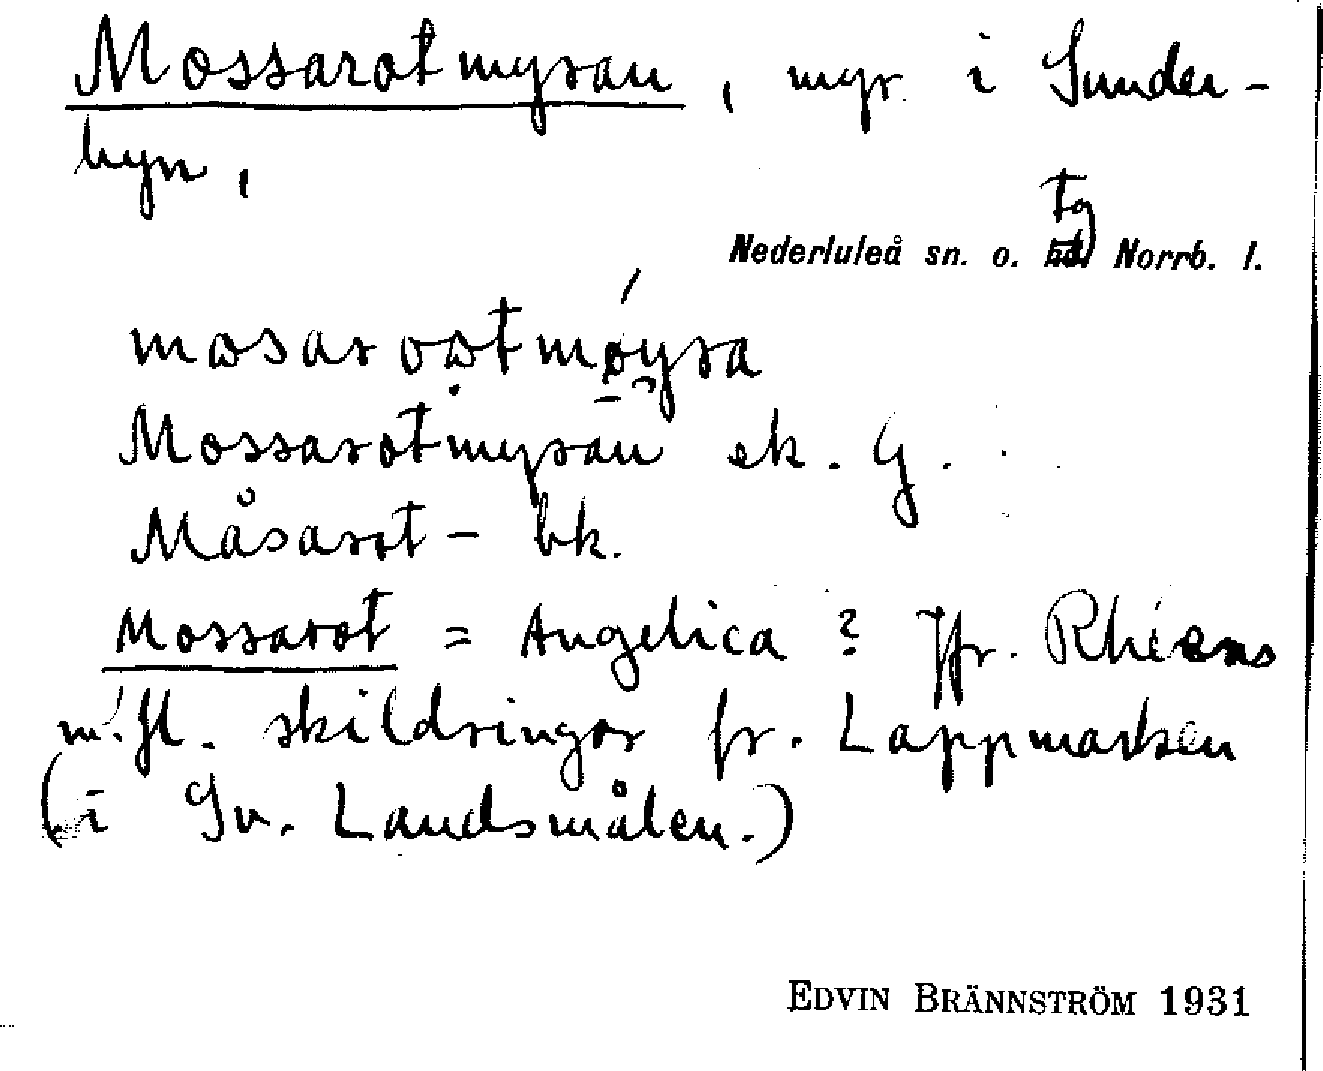 Mossarotmyran, myr i Sunder-
byn,
tg
Nederluleå sn. o. hd. Norrb. l.
mosarotmøyra
Mossarotmyran ek. G.
Måsarot- bk.
Mossarot = Angelica? Jfr. Rhéens
m. fl. skildringar fr. Lappmarken
(i Sv. Landsmålen.)
EDVIN BRÄNNSTRÖM 1931